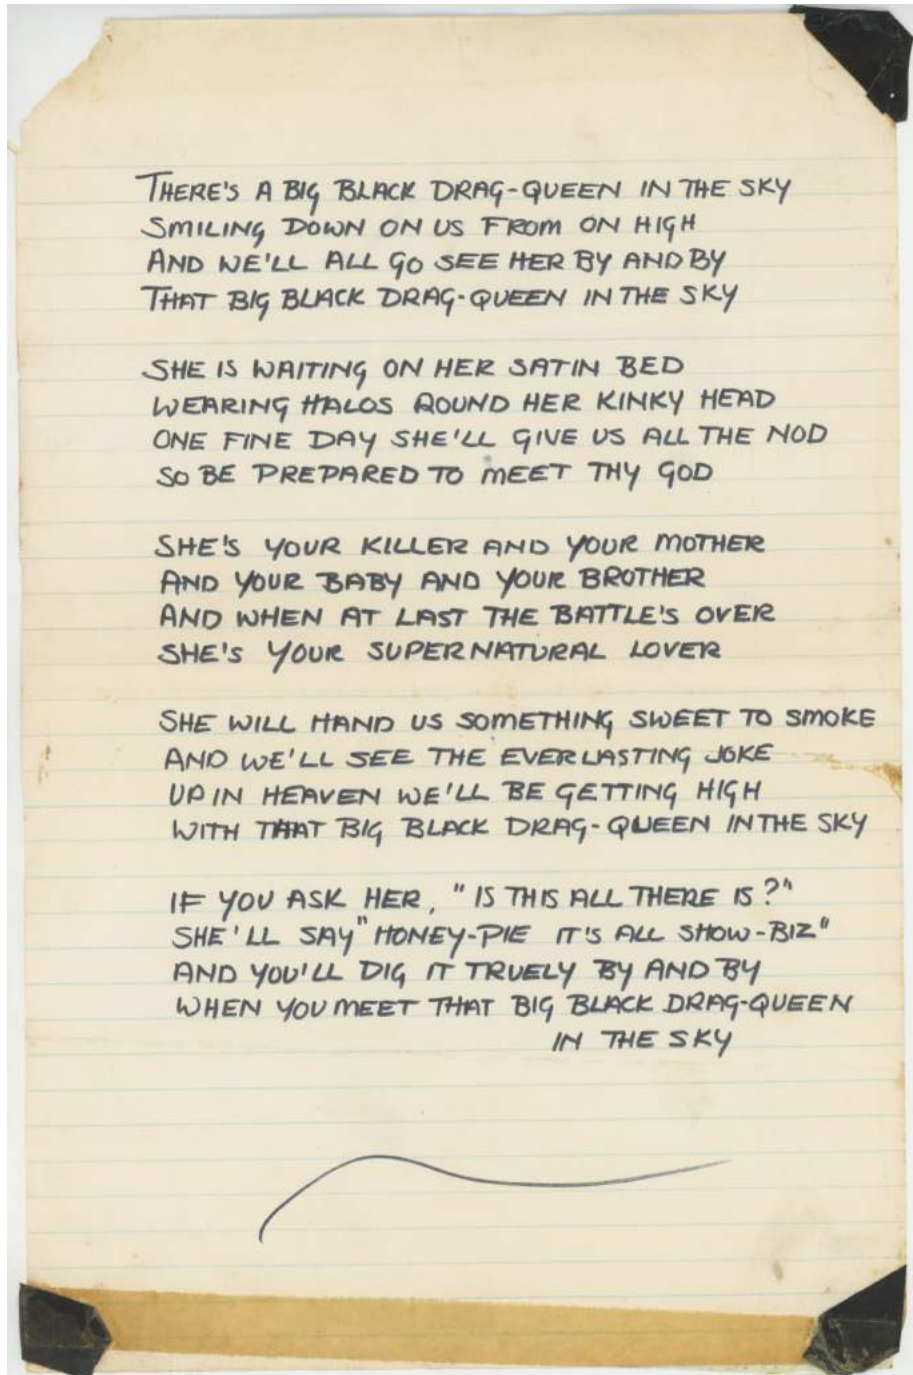 THERE'S A BIG BLACK DRAG-QUEEN IN THE SKY
SMILING DOWN ON US FROM ON HIGH
AND WE'LL ALL GO SEE HER BY AND BY
THAT BIG BLACK DRAG-QUEEN IN THE SKY

SHE IS WAITING ON HER SATIN BED
WEARING HALOS ROUND HER KINKY HEAD
ONE FINE DAY SHE'LL GIVE US ALL THE NOD
SO BE PREPARED TO MEET THY GOD

SHE'S YOUR KILLER AND YOUR MOTHER
AND YOUR BABY AND YOUR BROTHER
AND WHEN AT LAST THE BATTLE'S OVER
SHE'S YOUR SUPERNATURAL LOVER

SHE WILL HAND US SOMETHING SWEET TO SMOKE
AND WE'LL SEE THE EVERLASTING JOKE
UP IN HEAVEN WE'LL BE GETTING HIGH
WITH THAT BIG BLACK DRAG-QUEEN IN THE SKY

IF YOU ASK HER, "IS THIS ALL THERE IS?"
SHE'LL SAY "HONEY-PIE IT'S ALL SHOW-BIZ"
AND YOU'LL DIG IT TRUELY BY AND BY
WHEN YOU MEET THAT BIG BLACK DRAG-QUEEN
IN THE SKY